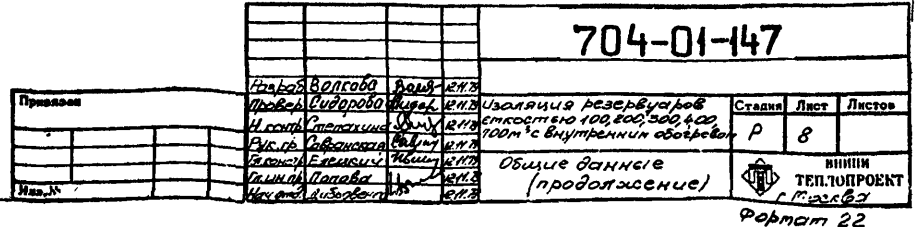 704-01-147
Привязан
Инв.№
Разраб Волкова
Провер Сидорова
Н.контр Степахина
Рук.гр. Савранская
Гл.констр Елецкий
Гл.инж.пр Попова
Нач.отд.
Изоляция резервуаров
емкостью 100, 200, 300, 400,
700м³ с внутренним обогревом
Стадия Лист Листов
Р 8
Общие данные
(продолжение)
ВНИПИ
ТЕПЛОПРОЕКТ
г. Москва
Формат 22